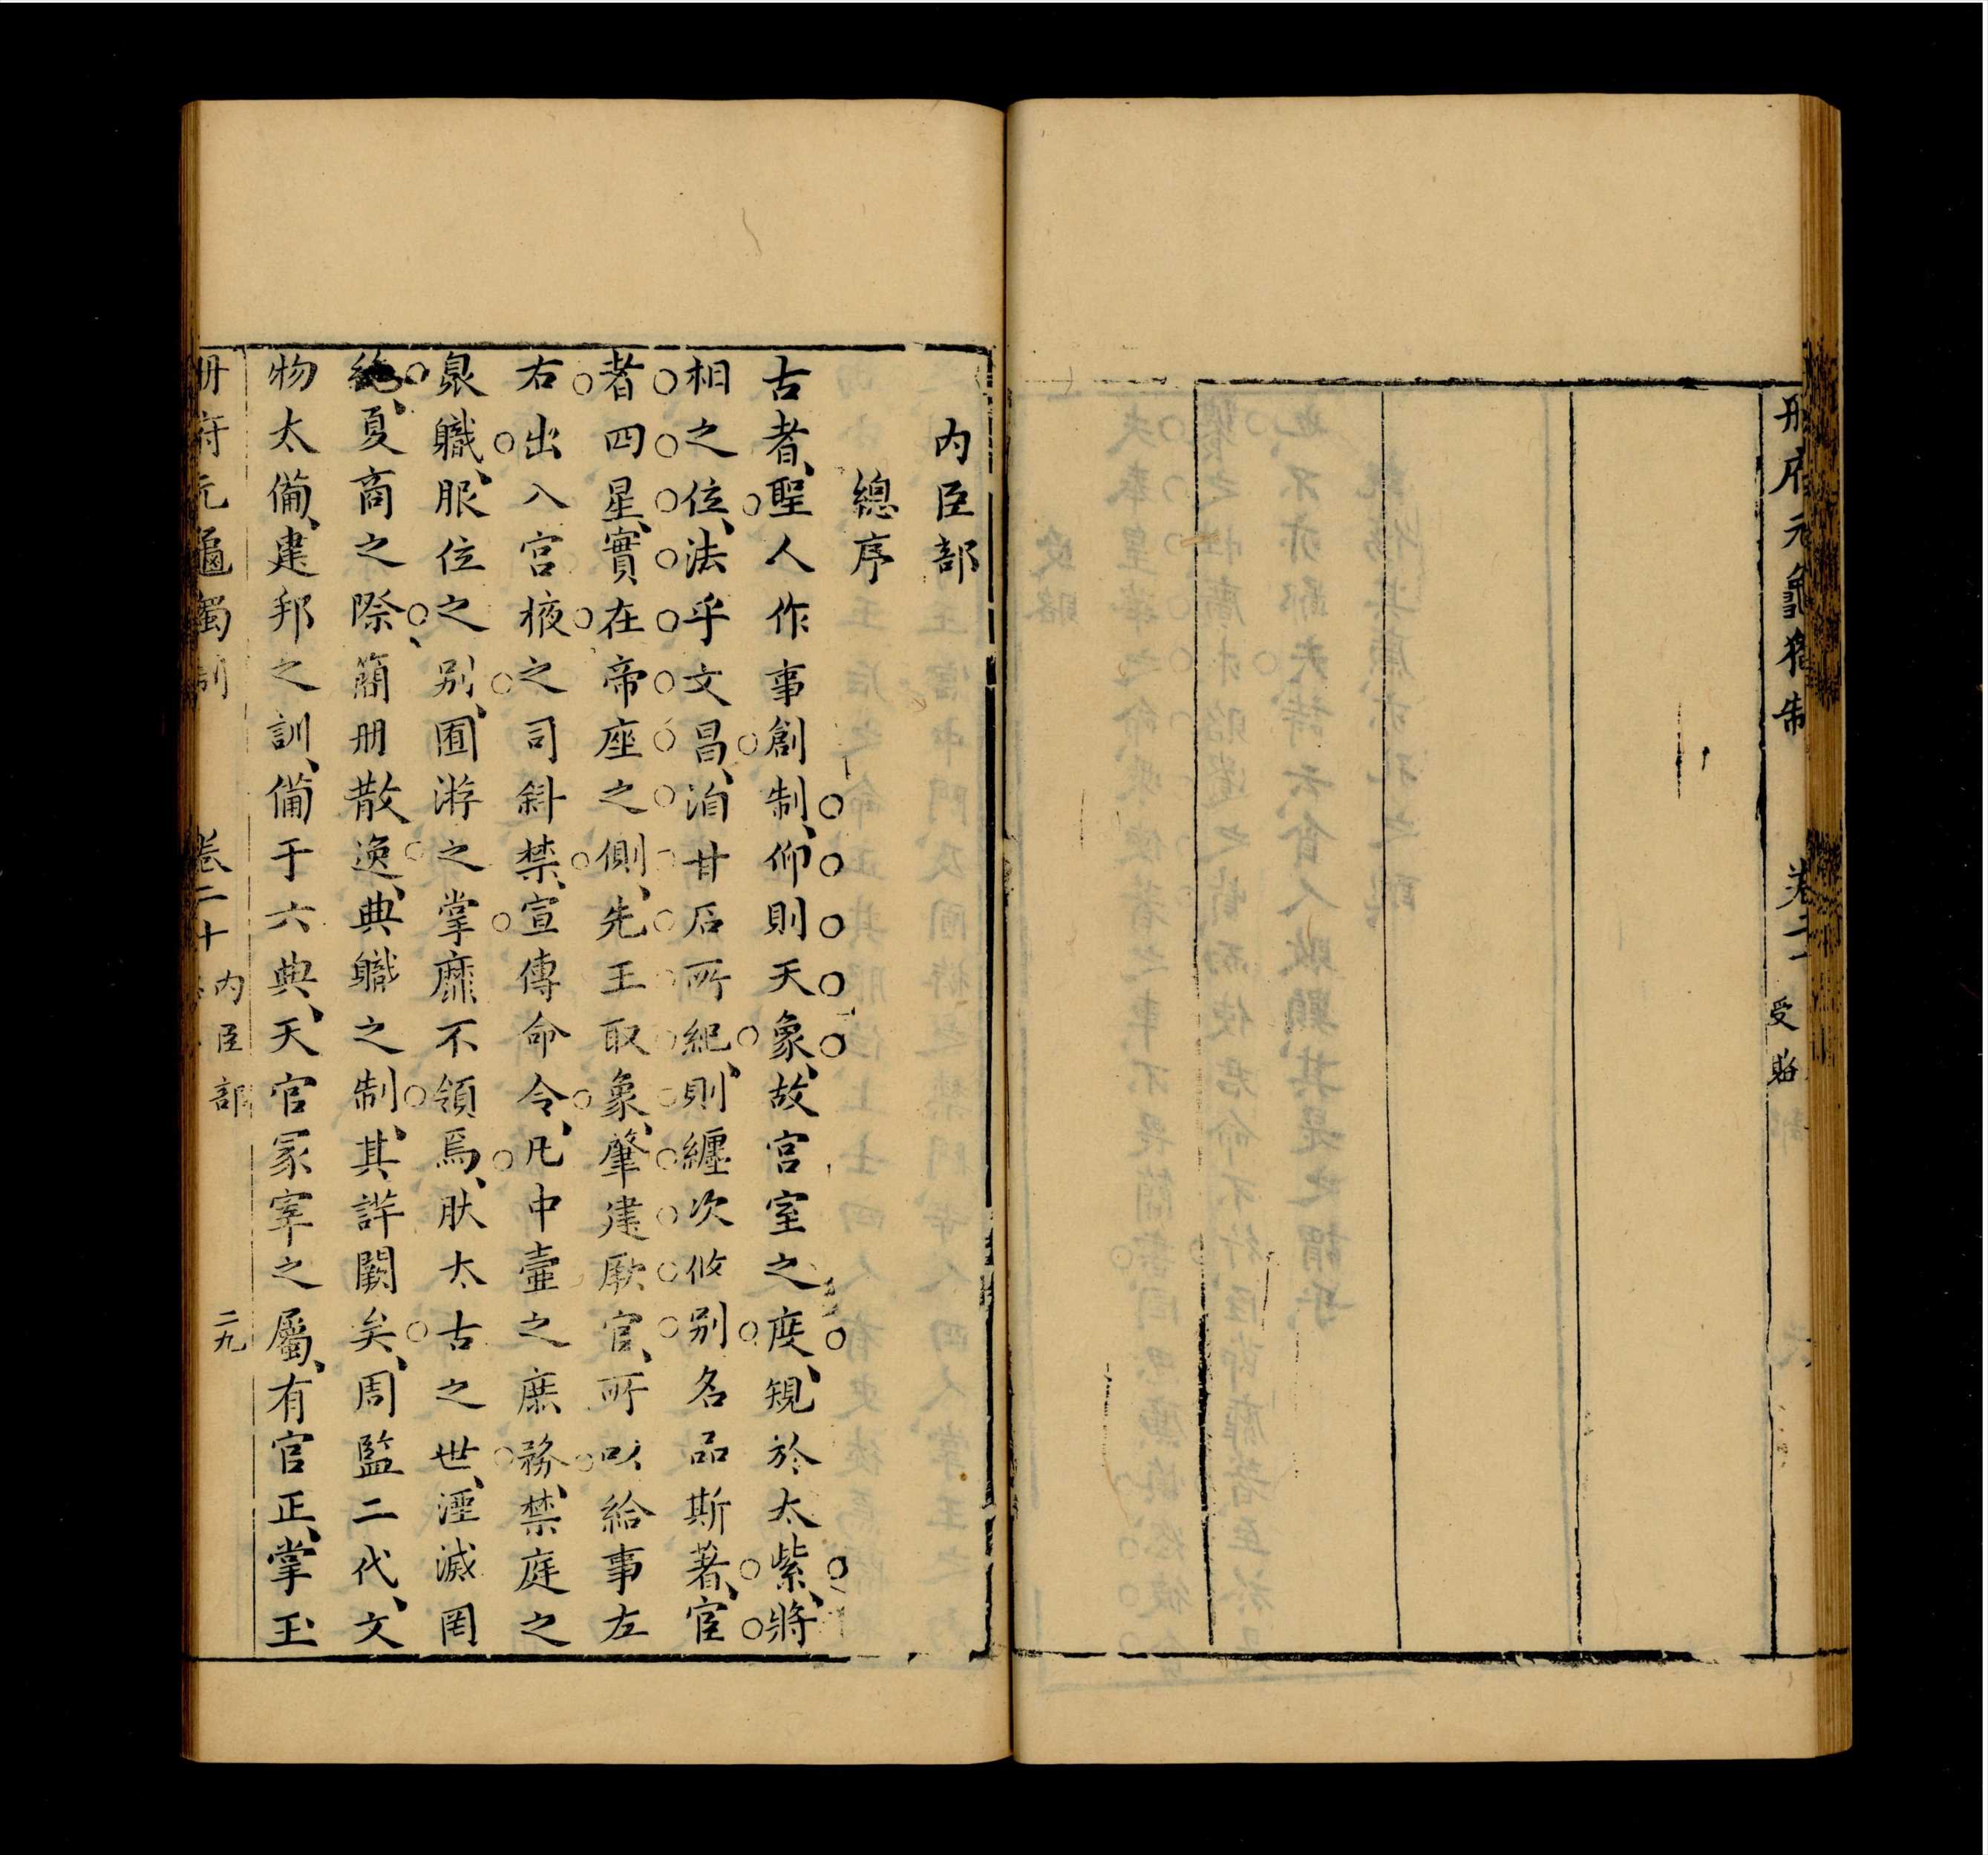 冊府元龜獨制
卷二十
受賂
內臣部
總序
古者、聖人作事創制、仰則天象、故宮室之度、規於太紫、將
相之位、法乎文昌、洎甘石所紀、則纏次攸别名品斯著、宦
者四星、實在帝座之側、先王取象、肇建厥官、所以給事左
右出入宮掖之司斜禁、宣傳命令、凡中壼之庶務、禁庭之
衆職、服位之别、囿游之掌靡不領焉、肰太古之世、湮滅罔
紀、夏商之際、簡册散逸、典職之制、其詳闕矣、周監二代、文
物太備、建邦之訓、備于六典、天官冢宰之屬、有宫正、掌王
冊府元龜獨制
卷二十
內臣部
二九